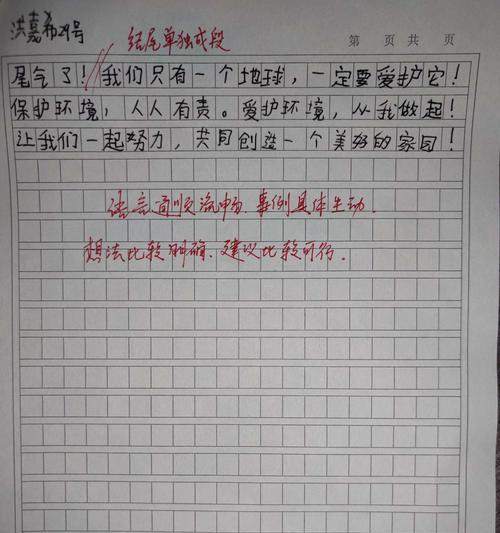 洪嘉希29号
结尾单独成段
第 页共 页
尾气了!//我们只有一个地球,一定要爱护它!
保护环境,人人有责。爱护环境,从我做起!
让我们一起努力,共同创造一个美好的家园!
语言通顺流畅.事例具体生动.
想法比较明确.建议比较可行.